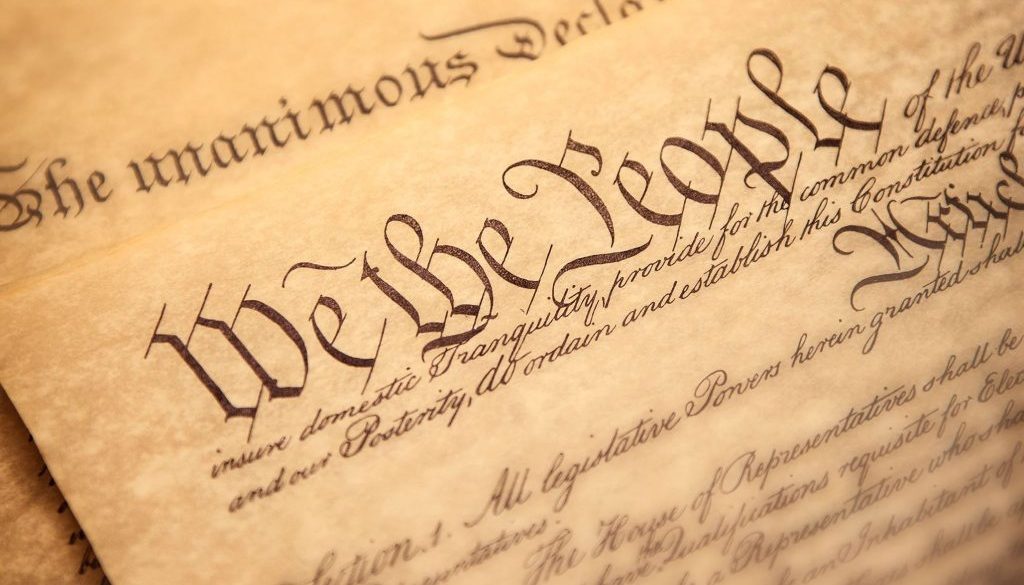 The unanimous Decla
We the People of the U
insure domestic Tranquility, provide for the common defence, p
and our Posterity, do ordain and establish this Constitution f
Article
All legislative Powers herein granted shall
Section. 1.
The House of Representatives shall be
Qualifications requisite for Elec
a Representative who sha
an Inhabitant of